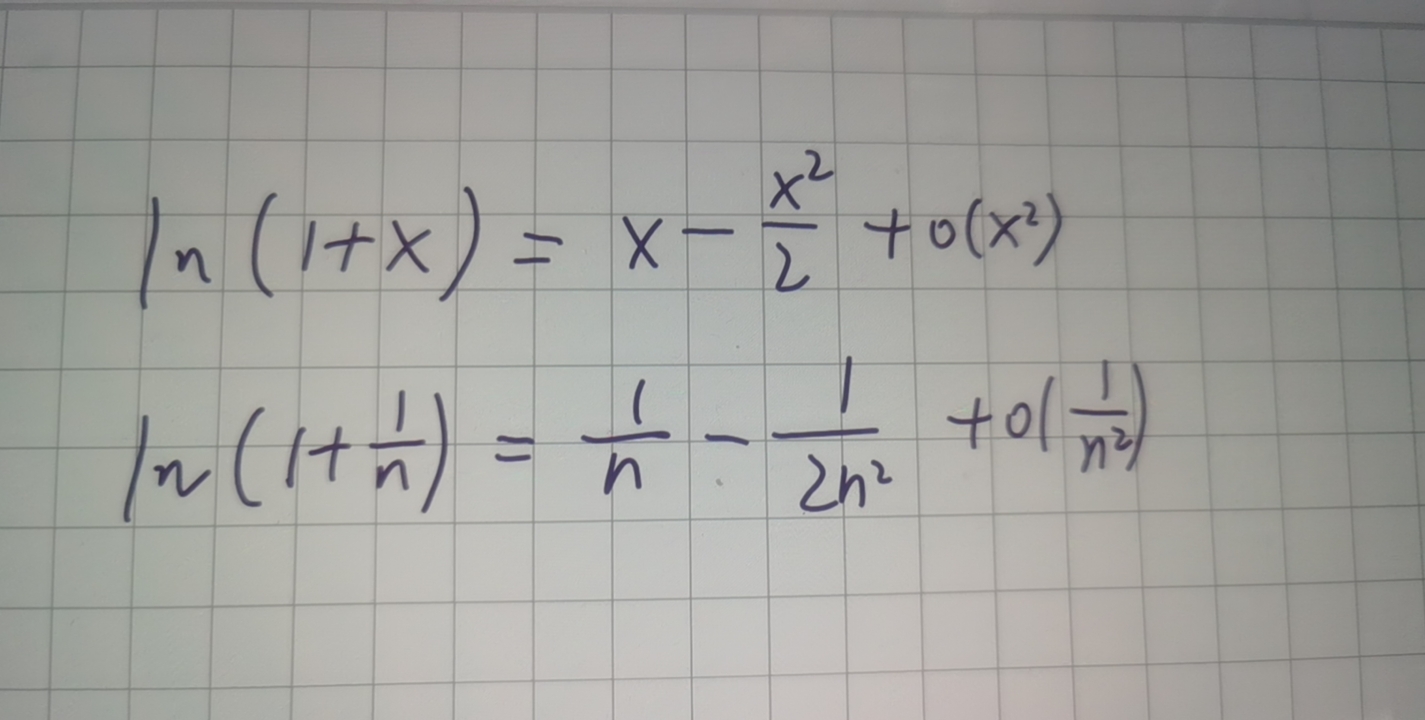 ln(1+x) = x - x²/2 + o(x²)
ln(1+1/n) = 1/n - 1/2n² + o(1/n²)